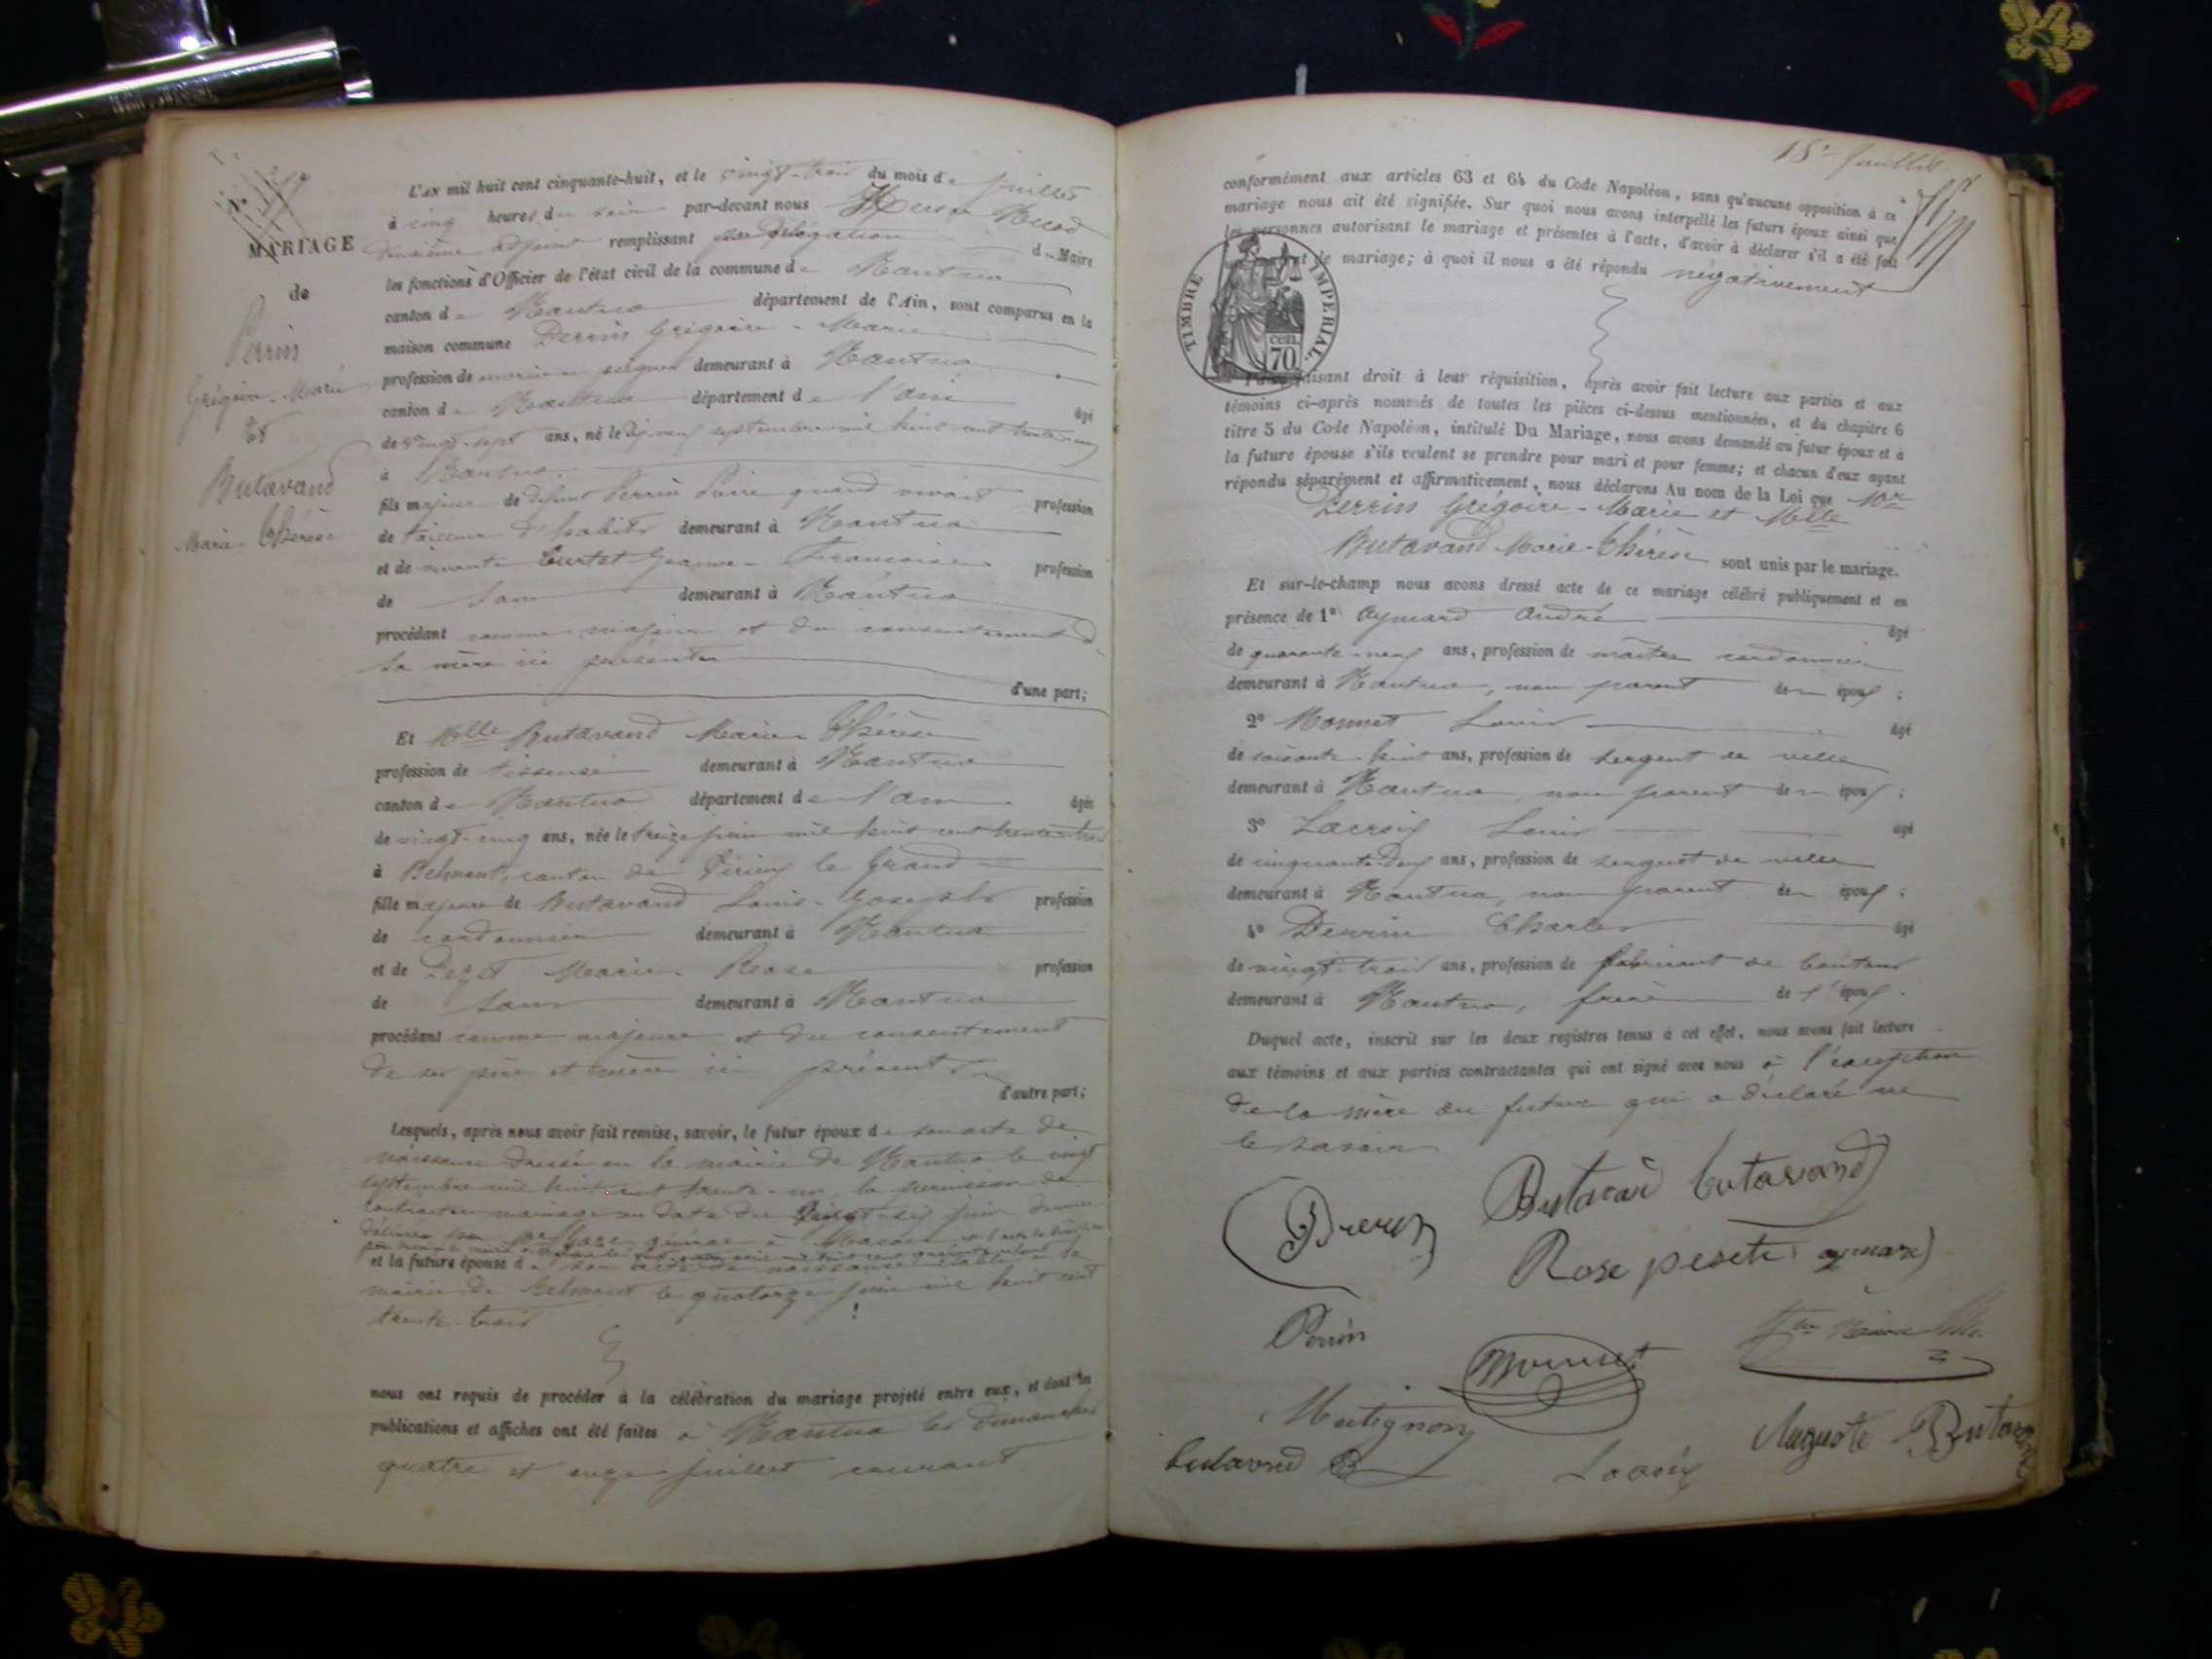 MARIAGE
de
Perrin
Grégoire-Marie
Et
Butavand
Marie Thérèse
L'AN mil huit cent cinquante-huit, et le vingt-trois du mois de juillet
à cinq heures du soir par-devant nous
deuxième adjoint remplissant par délégation du Maire
les fonctions d'Officier de l'état civil de la commune de Nantua
canton de Nantua département de l'Ain, sont comparus en la
maison commune Perrin Grégoire-Marie
profession de demeurant à Nantua
canton de Nantua département de l'ain âgé
de vingt-sept ans, né le dix neuf septembre mil huit cent trente un
à Nantua
fils majeur de défunt Perrin quand vivait profession
de tailleur d'habits demeurant à Nantua
et de vivante Curtet Jeanne-Françoise profession
de sans demeurant à Nantua
procédant comme majeur et du consentement de
sa mère ici présente
d'une part;
Et Melle Butavand Marie Thérèse
profession de demeurant à Nantua
canton de Nantua département de l'ain âgée
de vingt-cinq ans, née le treize juin mil huit cent trente trois
à Belmont, canton de Virieu le Grand
fille majeure de Butavand Louis-Joseph profession
de cordonnier demeurant à Nantua
et de Pezet Marie-Rose profession
de sans demeurant à Nantua
procédant comme majeure et du consentement
de ses père et mère ici présents
d'autre part;
Lesquels, après nous avoir fait remise, savoir, le futur époux de son acte de
naissance dressé en la mairie de Nantua le vingt
septembre mil huit cent trente-un, la permission de
contracter mariage en date du vingt-six juin dernier
délivrée par
et la future épouse de son acte de naissance établi en la
mairie de Belmont le quatorze juin mil huit cent
trente-trois
nous ont requis de procéder à la célébration du mariage projeté entre eux, et dont les
publications et affiches ont été faites à Nantua les dimanches
quatre et onze juillet courant
18e feuillet
conformément aux articles 63 et 64 du Code Napoléon, sans qu'aucune opposition à ce
mariage nous ait été signifiée. Sur quoi nous avons interpellé les futurs époux ainsi que
les personnes autorisant le mariage et présentes à l'acte, d'avoir à déclarer s'il a été fait
de mariage; à quoi il nous a été répondu négativement
TIMBRE IMPERIAL.
cen.
70
faisant droit à leur réquisition, après avoir fait lecture aux parties et aux
témoins ci-après nommés de toutes les pièces ci-dessus mentionnées, et du chapitre 6
titre 5 du Code Napoléon, intitulé Du Mariage, nous avons demandé au futur époux et à
la future épouse s'ils veulent se prendre pour mari et pour femme; et chacun d'eux ayant
répondu séparément et affirmativement, nous déclarons Au nom de la Loi que Mr
Perrin Grégoire-Marie et Melle
Butavand Marie-Thérèse sont unis par le mariage.
Et sur-le-champ nous avons dressé acte de ce mariage célébré publiquement et en
présence de 1° Aymard André âgé
de quarante-neuf ans, profession de maître cordonnier
demeurant à Nantua, non parent des époux;
2° Monnet Louis âgé
de soixante-huit ans, profession de sergent de ville
demeurant à Nantua, non parent des époux;
3° Lacroix Louis âgé
de cinquante-deux ans, profession de sergent de ville
demeurant à Nantua, non parent des époux;
4° Perrin Charles âgé
de vingt-trois ans, profession de fabricant de
demeurant à Nantua, frère de l'époux.
Duquel acte, inscrit sur les deux registres tenus à cet effet, nous avons fait lecture
aux témoins et aux parties contractantes qui ont signé avec nous à l'exception
de la mère du futur qui a déclaré ne
le savoir
Butavand
Rose pesete aymard
Perrin
Monnet
Mutignon
Auguste Butavand
butavand
Lacroix